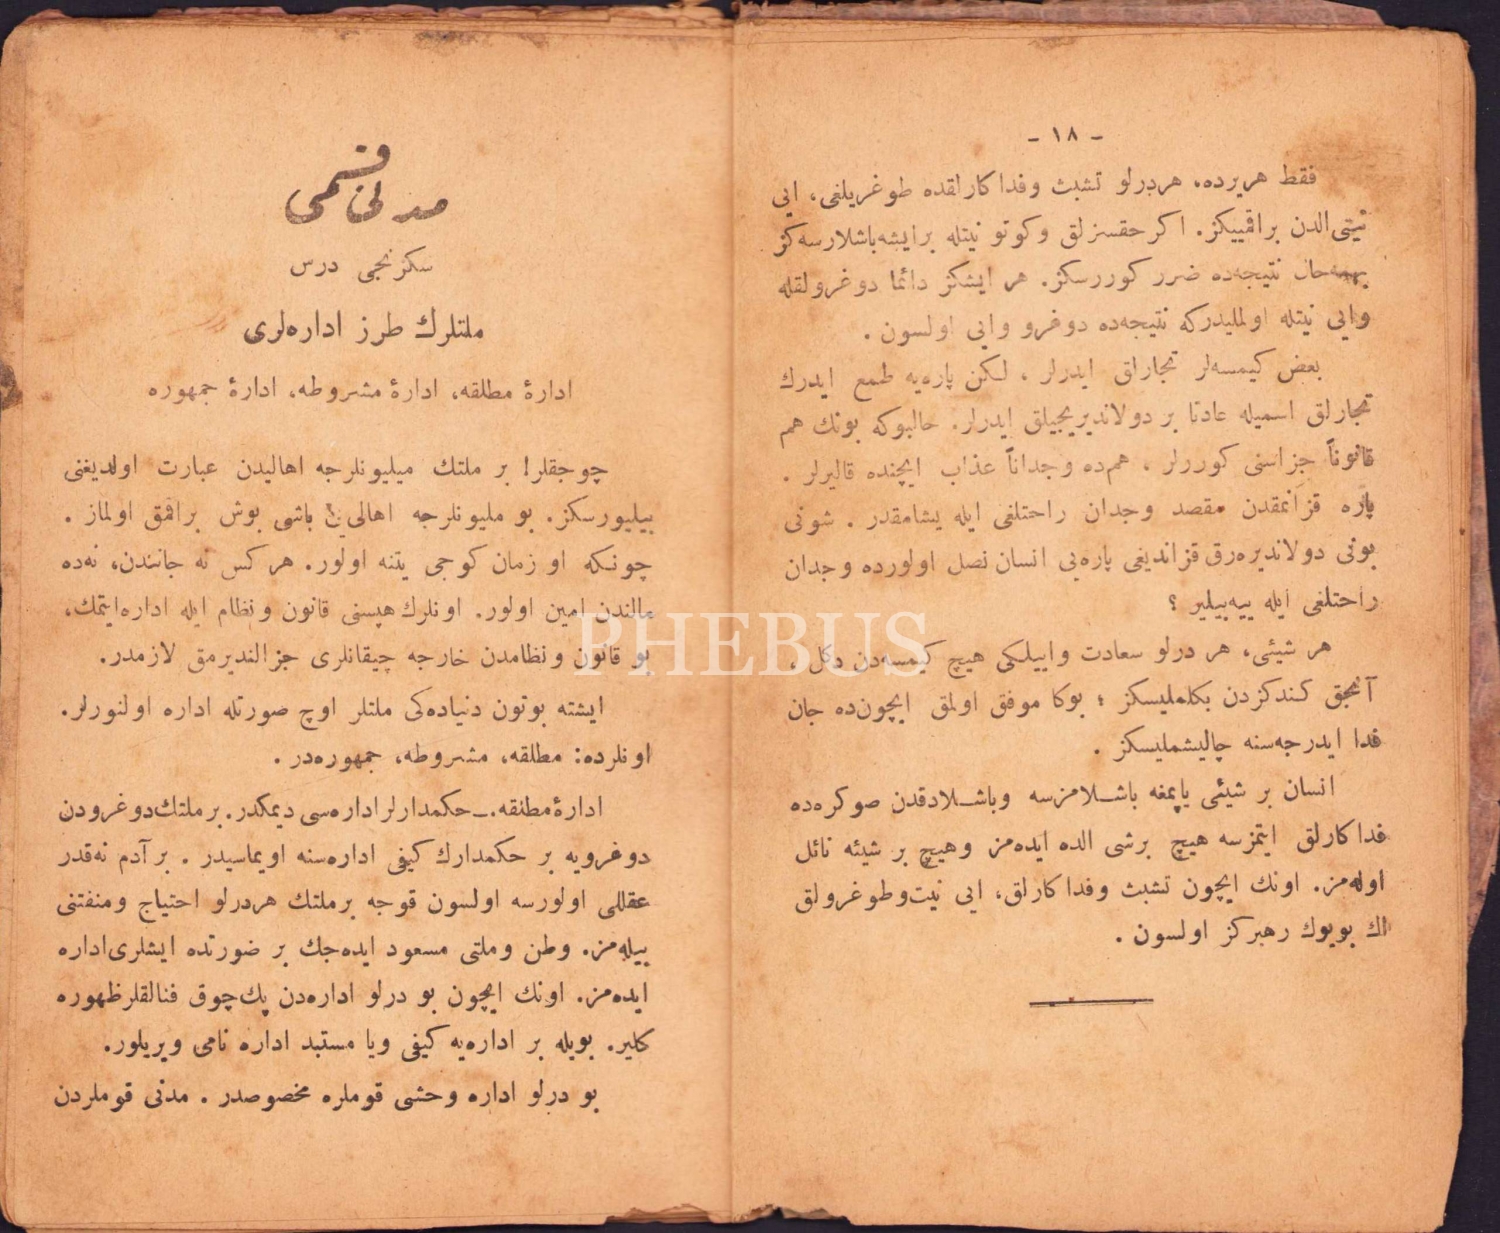 - ١٨ -
فقط هریرده، هردرلو تشبث وفداكارلقده طوغریلغی، ایی
نیتی الدن براقمییكز. اكر حقسزلق وكوتو نیتله برایشه باشلارسه‌كز
بهمه‌حال نتیجه‌ده ضرر كوررسكز. هر ایشكز دائما دوغرولقله
وایی نیتله اولملیدركه نتیجه‌ده دوغرو وایی اولسون .
بعض كیمسه‌لر تجارلق ایدرلر ، لكن پاره‌یه طمع ایدرك
تجارلق اسمیله عادتا بر دولاندیریجیلق ایدرلر. حالبوكه بونك هم
قانوناً جزاسنی كوررلر ، هم‌ده وجداناً عذاب ایچنده قالیرلر .
پاره قزانمقدن مقصد وجدان راحتلغی ایله یشامقدر . شونی
بونی دولاندیره‌رق قزاندیغی پاره‌یی انسان نصل اولورده وجدان
راحتلغی ایله ییه‌بیلیر ؟
هر شیئی، هر درلو سعادت واییلكی هیچ كیمسه‌دن دكل ،
آنجق كندكزدن بكلملیسكز ؛ بوكا موفق اولمق ایچون‌ده جان
فدا ایدرجه‌سنه چالیشملیسكز .
انسان بر شیئی یاپمغه باشلامزسه وباشلادقدن صوكره‌ده
فداكارلق ایتمزسه هیچ برشی الده ایده‌مز وهیچ بر شیئه نائل
اوله‌مز. اونك ایچون تشبث وفداكارلق، ایی نیت‌وطوغرولق
اك بویوك رهبركز اولسون .
مدنی قسمی
سكزنجی درس
ملتلرك طرز اداره‌لری
ادارۀ مطلقه، ادارۀ مشروطه، ادارۀ جمهوره
چوجقلر! بر ملتك میلیونلرجه اهالیدن عبارت اولدیغنی
بیلیورسكز. بو ملیونلرجه اهالی‌یی باشی بوش براقمق اولماز .
چونكه او زمان كوجی یتنه اولور. هركس نه جانندن، نه‌ده
مالندن امین اولور. اونلرك هپسنی قانون ونظام ایله اداره‌ایتمك،
بو قانون ونظامدن خارجه چیقانلری جزالندیرمق لازمدر.
ایشته بوتون دنیاده‌كی ملتلر اوچ صورتله اداره اولنورلر.
اونلرده: مطلقه، مشروطه، جمهوره‌در .
ادارۀ مطلقه.ـ حكمدارلر اداره‌سی دیمكدر. برملتك‌دوغرودن
دوغرویه بر حكمدارك كیفی اداره‌سنه اویماسیدر . بر آدم نه‌قدر
عقللی اولورسه اولسون قوجه برملتك هردرلو احتیاج ومنفتنی
بیله‌مز. وطن وملتی مسعود ایده‌جك بر صورتده ایشلری‌اداره
ایده‌مز. اونك ایچون بو درلو اداره‌دن پك‌چوق فنالقلرظهوره
كلیر. بویله بر اداره‌یه كیفی ویا مستبد اداره نامی ویریلور.
بو درلو اداره وحشی قوملره مخصوصدر . مدنی قوملردن
PHEBUS